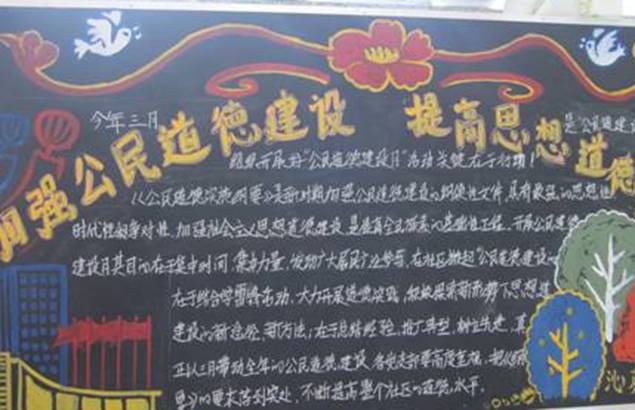 加强公民道德建设 提高思想道德
今年三月 是"公民道德建
组织开展好"公民道德建设月"活动关键在于行动!
《公民道德实施纲要》是新时期加强公民道德建设的纲领性文件,具有较强的思想性
时代性和针对性,加强社会主义思想道德建设,是提高全民族素质的基础性工程。开展公民道德
建设月其目的在于集中时间、集中力量、发动广大居民广泛参与,在社区掀起"公民道德建设的
在于结合学雷锋活动、大力开展道德实践,积极探索新形势下思想道
建设的新途径、新方法;在于总结经验、推广典型、树立先进,真
正以三月带动全年的公民道德建设。各党支部要高度重视,把《
要》的要求落到实处,不断提高整个社区的道德水平。